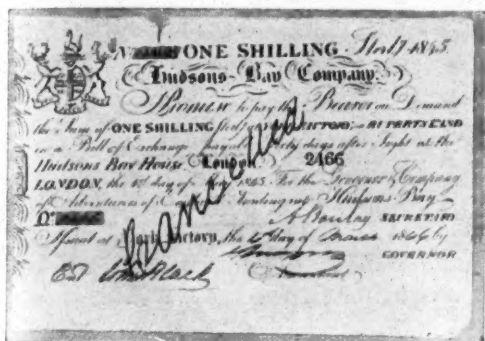 N ONE SHILLING Sterlg 1845
Hudsons Bay Company.
I Promise to pay the Bearer on Demand
the Sum of ONE SHILLING Sterlg at York FACTORY in RUPERTS LAND
in a Bill of Exchange payable Sixty days after Sight at the
Hudsons Bay House, London 2466
LONDON, the 1st day of May 1845. For the Governor & Company
of Adventurers of England trading into Hudsons Bay
A Barclay SECRETARY
Cancelled
Issued at York Factory, the day of 1846 by
GOVERNOR
Accountant